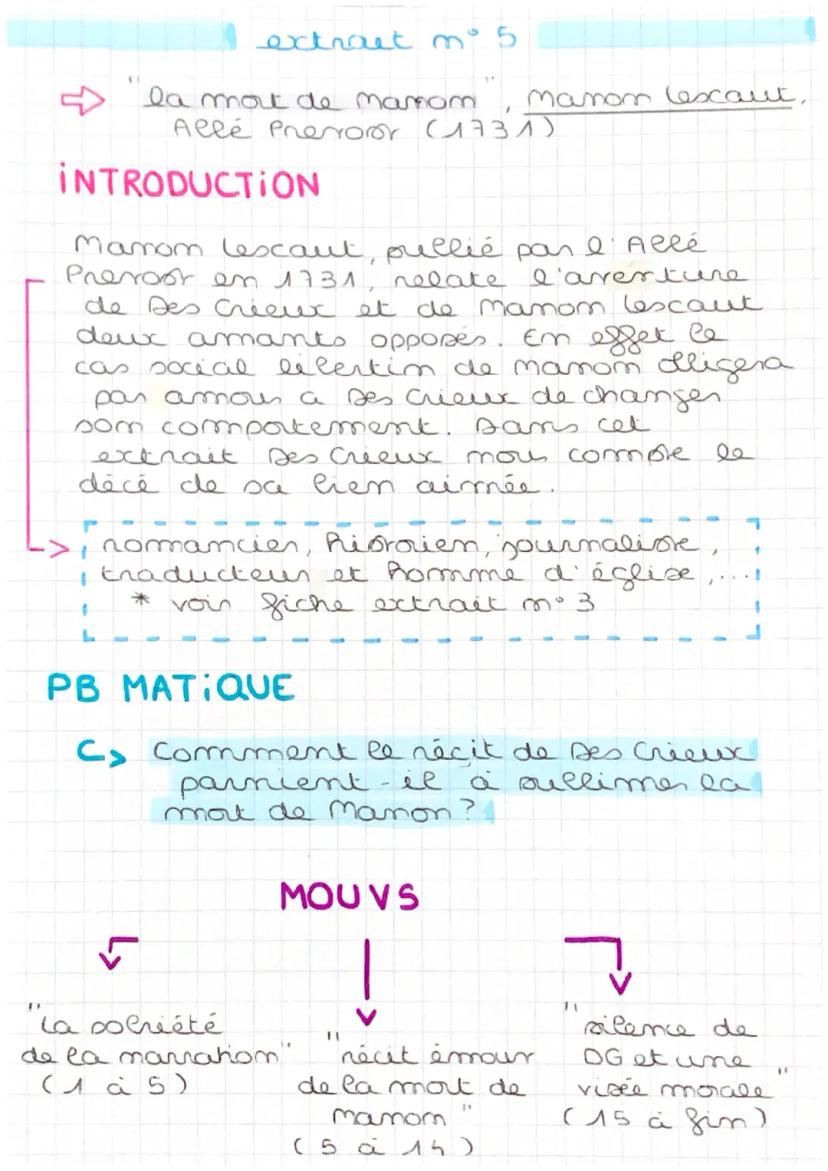 extrait n° 5
"la mort de manon", Manon Lescaut,
Abbé Prevost (1731)
INTRODUCTION
Manon Lescaut, publié par l'Abbé
Prevost en 1731, relate l'aventure
de Des Grieux et de Manon Lescaut
deux amants opposés. En effet le
cas social libertin de Manon obligera
par amour a Des Grieux de changer
son comportement. Dans cet
extrait Des Grieux nous compte le
décé de sa bien aimée.
rommancier, historien, journaliste,
traducteur et homme d'église,...
* voir fiche extrait n° 3
PB MATIQUE
Comment le récit de Des Grieux
parvient-il à sublimer la
mort de Manon ?
MOUVS
"la sobriété
de la narration"
(1 à 5)
"récit émouv
de la mort de
manon"
(5 à 14)
"silence de
DG et une
visée morale"
(15 à fin)